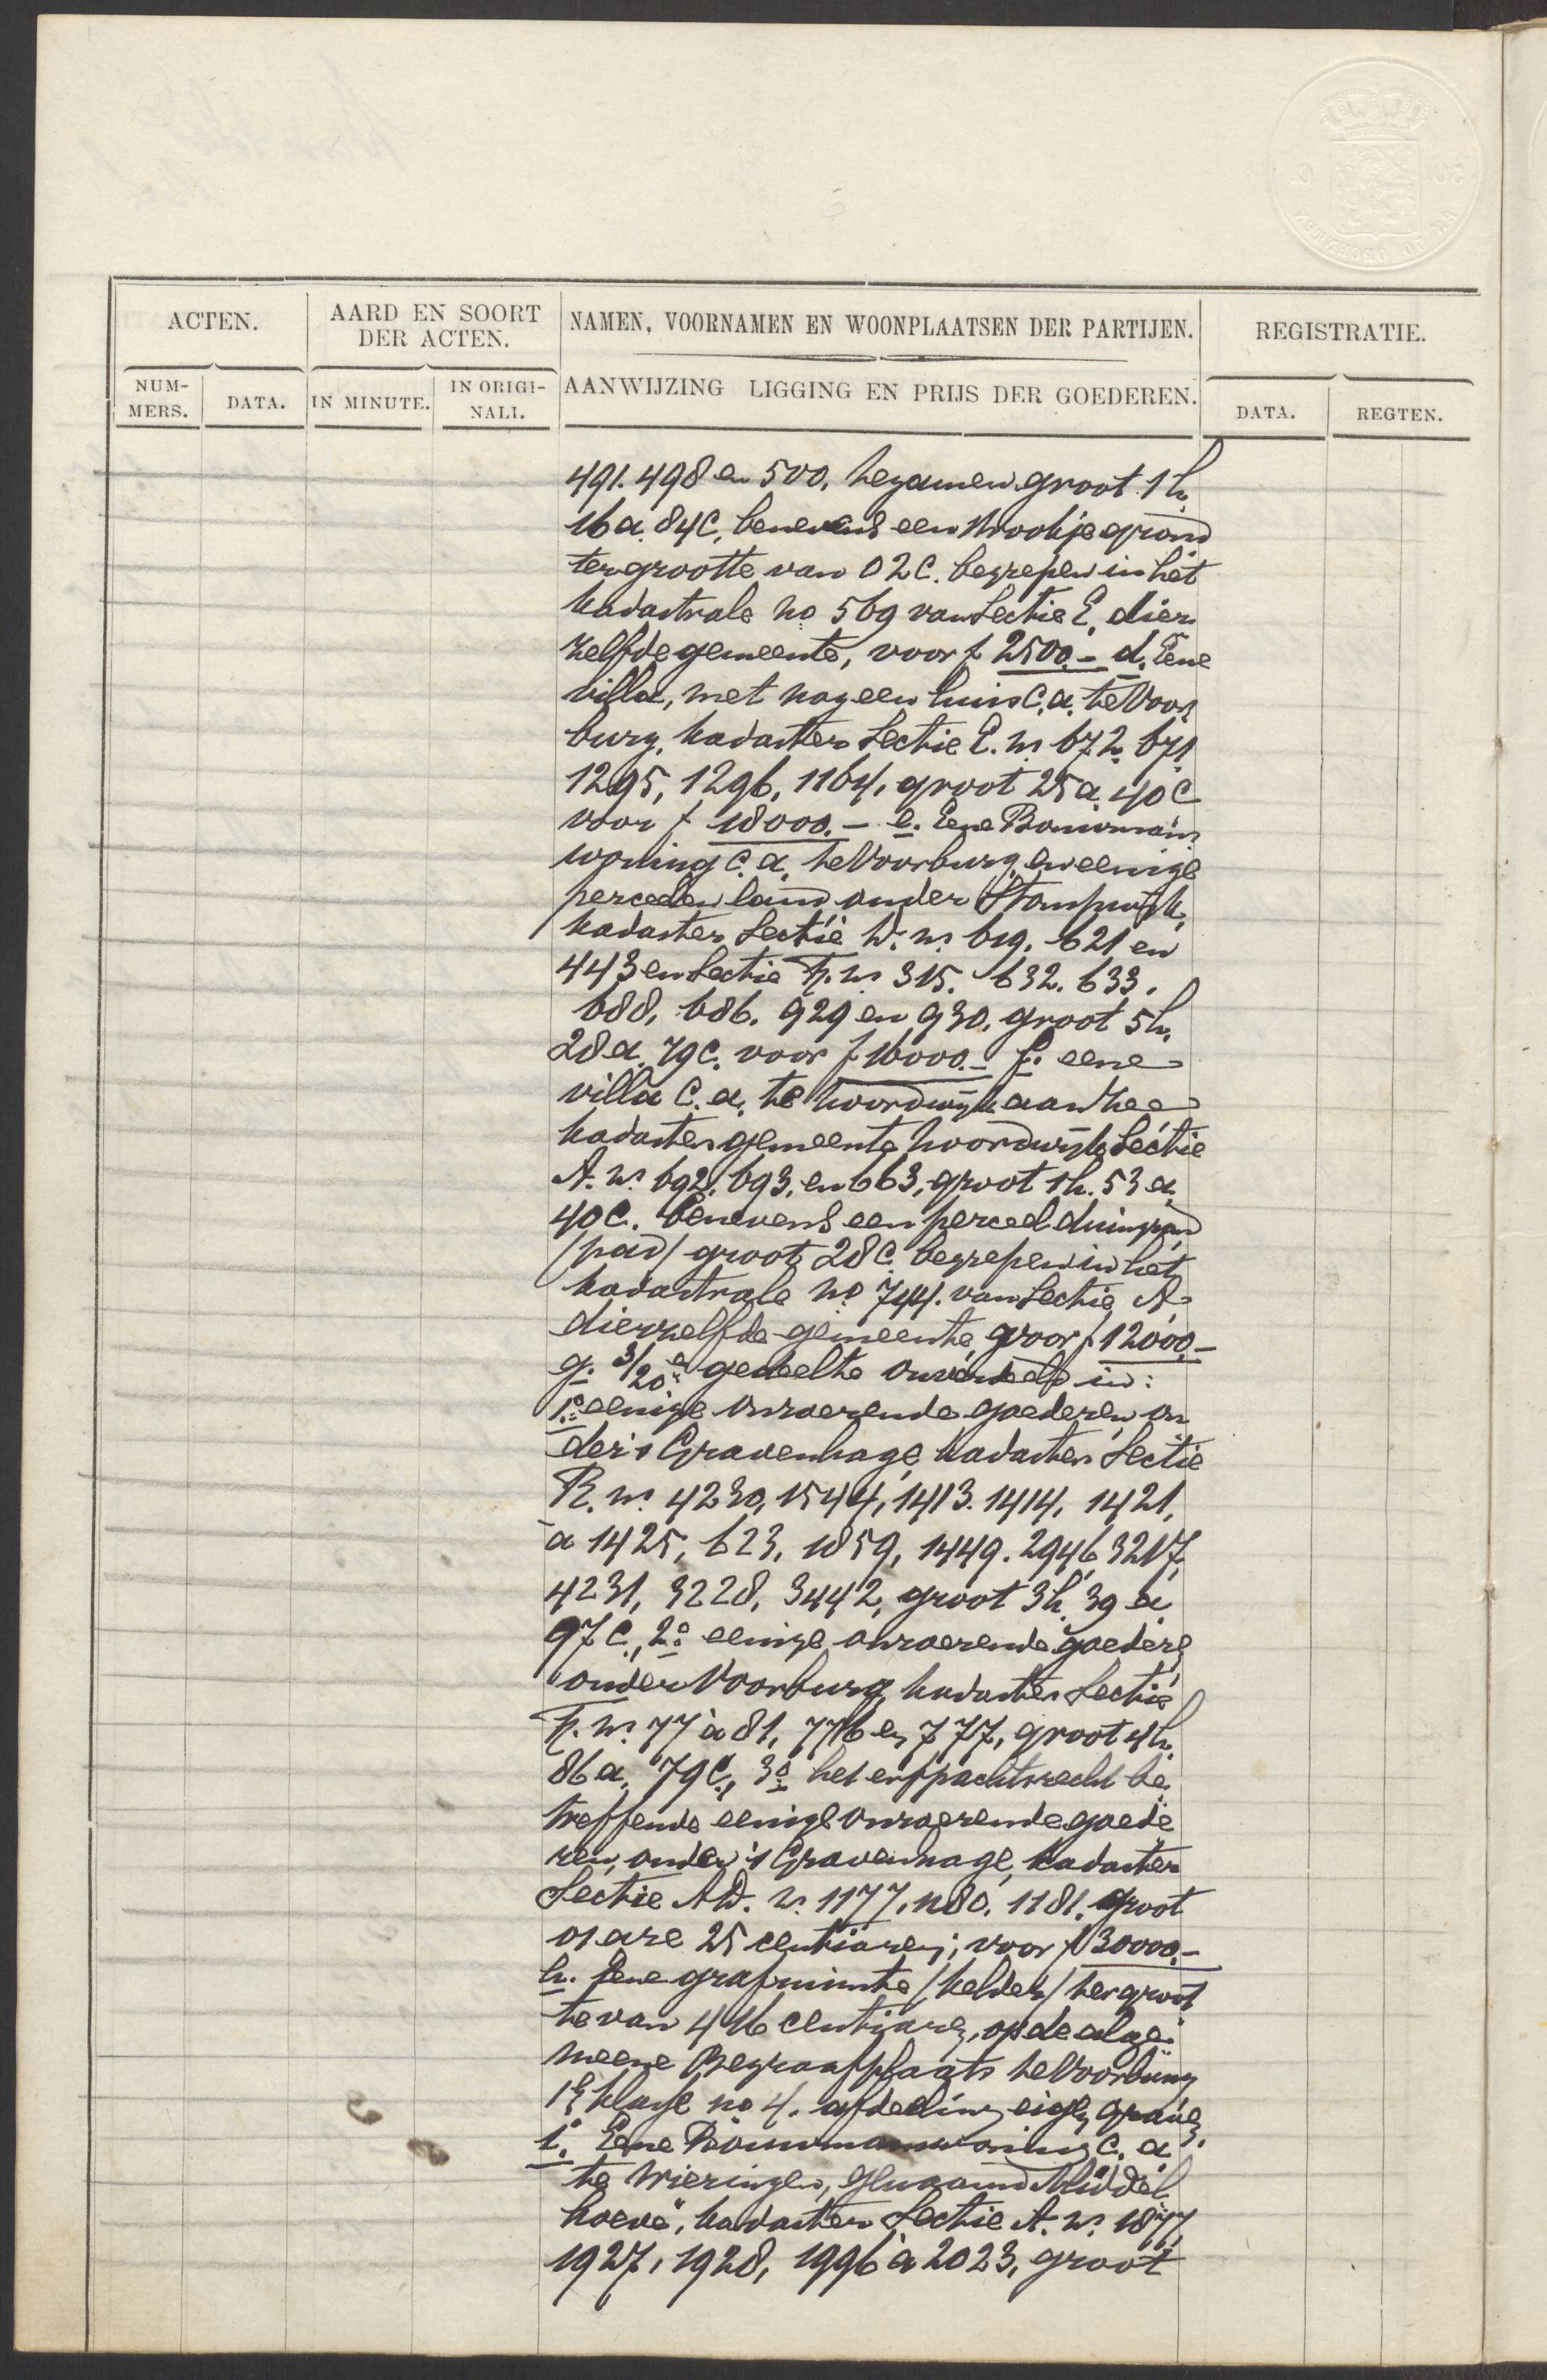 ACTEN.
AARD EN SOORT
DER ACTEN.
NAMEN, VOORNAMEN EN WOONPLAATSEN DER PARTIJEN.
REGISTRATIE.
NUM-
MERS.
DATA.
IN MINUTE.
IN ORIGI-
NALI.
AANWIJZING LIGGING EN PRIJS DER GOEDEREN.
DATA.
REGTEN.
491. 498 en 500, tezamen groot 1 h.
16 a. 84 c, benevens een strookje grond
ter grootte van 02 c. begrepen in het
kadastrale no 569 van Sectie E, dier
zelfde gemeente, voor f 2500.- d. Eene
villa, met nog een huis c.a. te Voor
burg, kadaster Sectie E. ns 672, 671
1295, 1296, 1164, groot 25 a 40 c
voor f 18000.- e. Eene Bouwmans
woning c.a. te Voorburg en eenige
perceelen land onder Stompwijk,
kadaster Sectie D. ns 619. 621 en
443 en Sectie F. ns 315. 632. 633.
688, 686. 929 en 930, groot 5 h.
28 a. 79 c. voor f 16000.- f. eene
villa c.a. te Noordwijk aan Zee
kadaster gemeente Noordwijk Sectie
A. ns 692, 693, en 663, groot 1 h. 53 a.
40 c. benevens een perceel duingrond
/pad/ groot 28 c. begrepen in het
kadastrale no 744. van Sectie A
dierzelfde gemeente, voor f 12000.-
g. 3/20e gedeelte onverdeeld in:
1e eenige onroerende goederen on
der 's Gravenhage, kadaster Sectie
R. ns 4230, 1544, 1413. 1414, 1421,
à 1425, 623, 1859, 1449. 2946, 3217,
4231, 3228, 3442, groot 3 h. 39 a
97 c., 2e eenige onroerende goederen
onder Voorburg, kadaster Sectie
F. ns 77 à 81, 776 en 777, groot 4 h.
86 a. 79 c., 3e het erfpachtsrecht be
treffende eenige onroerende goede
ren, onder 's Gravenhage, kadaster
Sectie AD. ns 1177, 1180, 1181, groot
01 are 25 centiaren; voor f 30000.-
h. Eene grafruimte /kelder/ ter groot
te van 416 centiaren, op de alge
meene Begraafplaats te Voorburg
1e klasse no 4. afdeeling eigen graven.
i. Eene Bouwmanswoning c.a.
te Wieringen, genaamd "Middel
hoeve", kadaster Sectie A. ns 1877,
1927, 1928, 1996 à 2023, groot